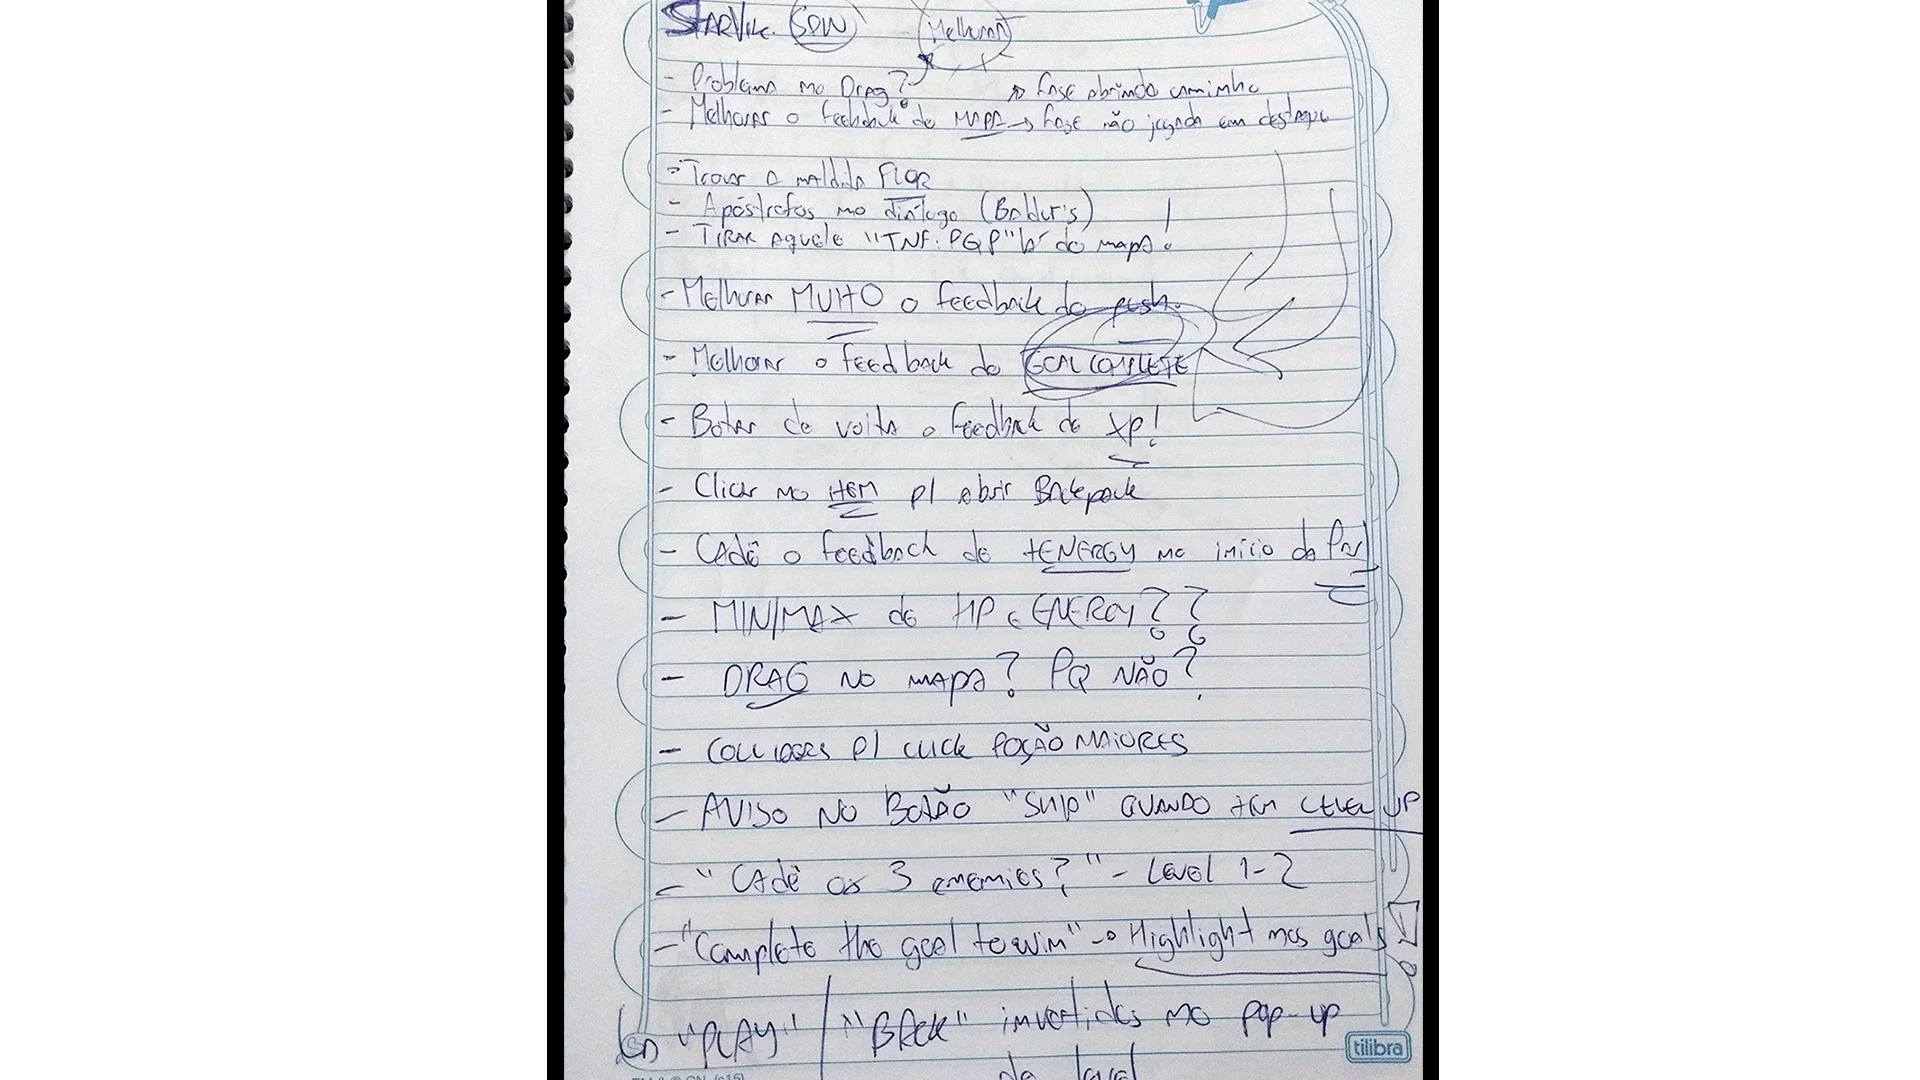 STARVILLE. SDW Melhorar
- Problema no Drag?
→ Fase abrindo caminho
- Melhorar o feedback do MAPA → fase não jogada em destaque
- Trocar a maldita FLOR
- Apóstrofos no diálogo (Baldur's)
- TIRAR Aquele "TNF: PGP" lá do mapa!
- Melhorar MUITO o feedback do push.
- Melhorar o feedback do GOAL COMPLETE
- Botar de volta o feedback do XP!
- Clicar no ITEM p/ abrir Backpack
- CAdê o feedback de +ENERGY no início da
- MIN/MAX de HP e ENERGY??
- DRAG NO MAPA? PQ NÃO?
- COLLIDERS P/ CLICK POÇÃO MAIORES
- AVISO NO BOTÃO "SHIP" QUANDO TEM LEVEL UP
- "CAdê os 3 enemies?" - Level 1-2
- "Complete the goal to win" → Highlight nos goals!
↳ "PLAY" / "BACK" invertidos no pop-up
do level
tilibra